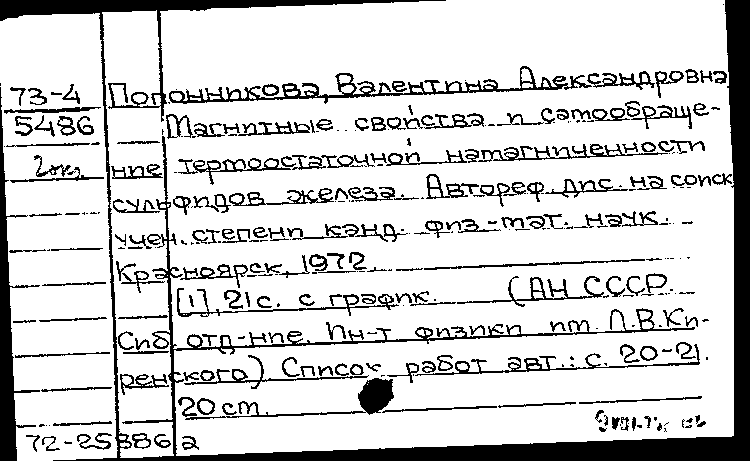 73-4 Попонникова, Валентина Александровна
5486 Магнитные свойства и самообраще-
2 экз. ние термоостаточной намагниченности
сульфидов железа. Автореф. дис. на соиск
учен. степени канд. физ.-мат. наук.
Красноярск, 1972.
[1], 21 с. с график. (АН СССР.
Сиб. отд-ние. Ин-т физики им. Л.В.Ки-
ренского) Список работ авт.: с. 20-21.
20 см.
72-25886 а